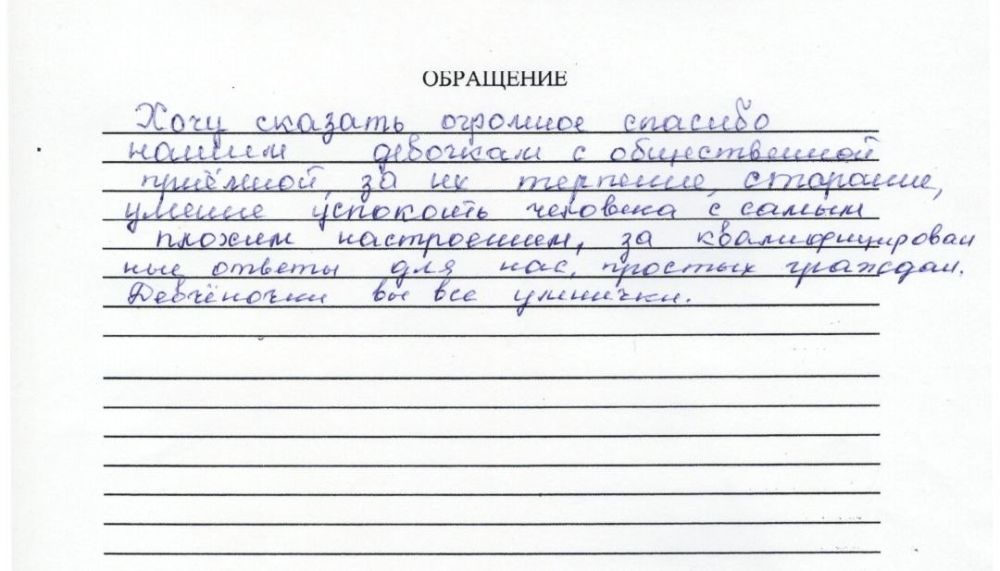 ОБРАЩЕНИЕ
Хочу сказать огромное спасибо
нашим девочкам с общественной
приёмной, за их терпение, старание,
умение успокоить человека с самым
плохим настроением, за квалифицирован
ные ответы для нас, простых граждан.
Девчёночки вы все умнички.